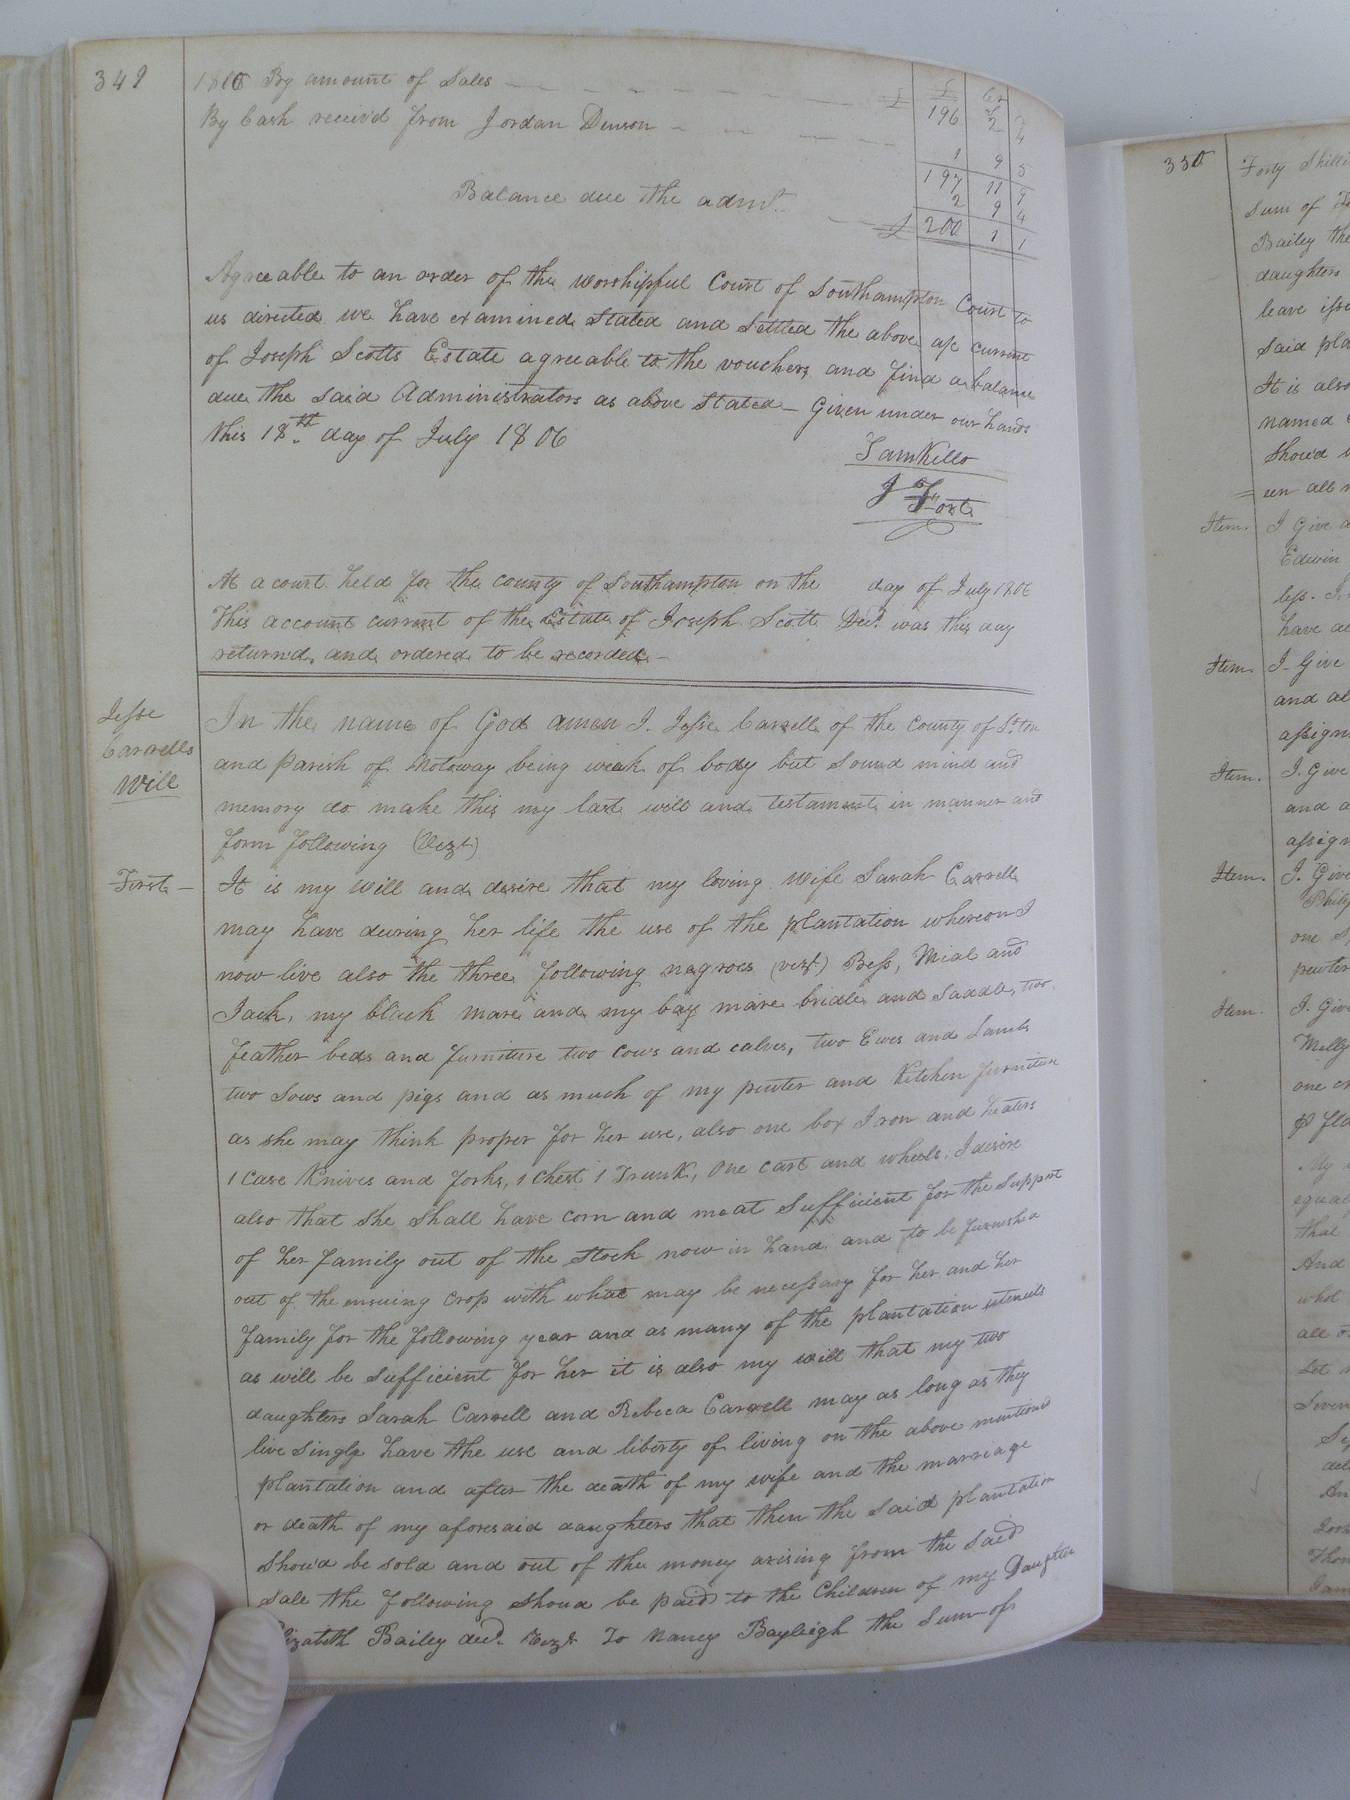 349
1806 By amount of Sales £ 196 2 4
By Cash receiv'd from Jordan Denson 1 9 5
197 11 9
Balance due the admr. 2 9 4
£ 200 1 1
Agreeable to an order of the worshipful Court of Southampton Court to
us directed we have examined Stated and Settled the above a/c current
of Joseph Scotts Estate agreeable to the vouchers and find a balance
due the said Administrators as above Stated - Given under our hands
this 18th. day of July 1806
Sam Kello
J Fort
At a court held for the county of Southampton on the day of July 1806
This account current of the Estate of Joseph Scott Decd. was this day
returnd, and ordered to be recorded -
Jesse
Carrells
Will
In the name of God amen I, Jesse Carrell of the County of S.ton
and parish of Notoway being weak of body but Sound mind and
memory do make this my last will and testament in manner and
form following (Vizt)
First -
It is my will and desire that my loving wife Sarah Carrell
may have during her life the use of the plantation whereon I
now live also the three following negroes (vizt) Bess, Mial and
Jack, my black mare and my bay mare bridle and Saddle, two
feather beds and furniture two cows and calves, two Ewes and Lambs
two Sows and pigs and as much of my pewter and Kitchen furniture
as she may think proper for her use, also one box Iron and heaters
1 Case Knives and forks, 1 Chest 1 Trunk, One cart and wheels. I desire
also that she shall have corn and meat Sufficient for the Support
of her family out of the stock now in hand and to be furnished
out of the ensuing crop with what may be necessary for her and her
family for the following year and as many of the plantation utensils
as will be sufficient for her it is also my will that my two
daughters Sarah Carrell and Rebeca Carrell may as long as they
live Single have the use and liberty of living on the above mentioned
plantation and after the death of my wife and the marriage
or death of my aforesaid daughters that then the Said plantation
Shou'd be sold and out of the money arising from the Said
Sale the following Shoud be paid to the Children of my Daughter
Elizabeth Bailey decd. Vizt. To Nancy Bayleigh the Sum of
350
Forty Shilli
Sum of
Bailey the
daughters
leave issu
Said pla
It is also
named
Shou'd
een all
Item. I Give
Edwin
less.
have
Item. I Give
and al
assigns
Item. I Give
and a
assign
Item. I Give
one
pewter
Item. I Give
Milly
one
My
equal
that
And
what
all
Let
Seven
An